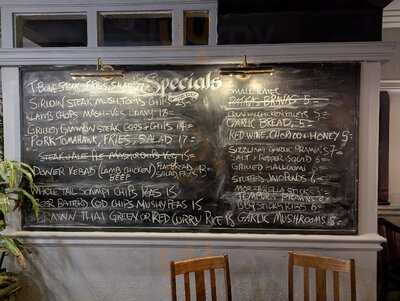 Specials
T. BONE STEAK, FRIES, SALAD
SIRLOIN STEAK, MUSH, TOMS CHIPS
LAMB CHOPS MASH, VEG
GRILLED GAMMON STEAK EGGS + CHIPS
PORK TOMAHAWK, FRIES, SALAD 17
STEAK + ALE PIE MASH VEG 15
DONER KEBAB (LAMB CHICKEN)
BEEF
WHOLE TAIL SCAMPI CHIPS PEAS 15
BEER BATTERED COD CHIPS MUSHY PEAS 15
PRAWN THAI GREEN OR RED CURRY RICE 15
SMALL PLATES
5
CHICKEN 7
GARLIC BREAD, 5
RED WINE, CHORIZO + HONEY 5
SIZZLING GARLIC PRAWNS 7
SALT + PEPPER SQUID 6
GRILLED HALLOUMI 6
6
MOZZARELLA STICKS
TEMPURA PRAWNS
CRISPY SICKEN RIBS 6
GARLIC MUSHROOMS 5